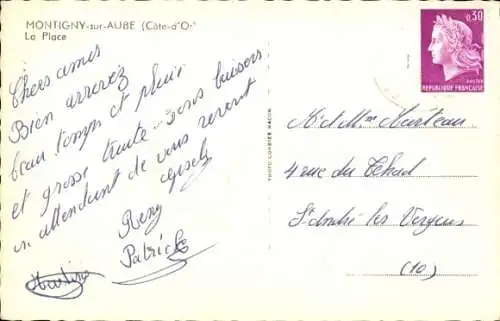 MONTIGNY-sur-AUBE (Côte-d'O-
La Place
Chers amis
Bien arrivez
beau temps et pluie
et grosse truite - bons baisers
en attendant de vous revoir
Gisèle
Remy
Patrick
Martine
PHOTO COMBIER MACON
0,30
POSTES
REPUBLIQUE FRANÇAISE
M. et Mme Marteau
4 rue du
St André les Vergers
(10)